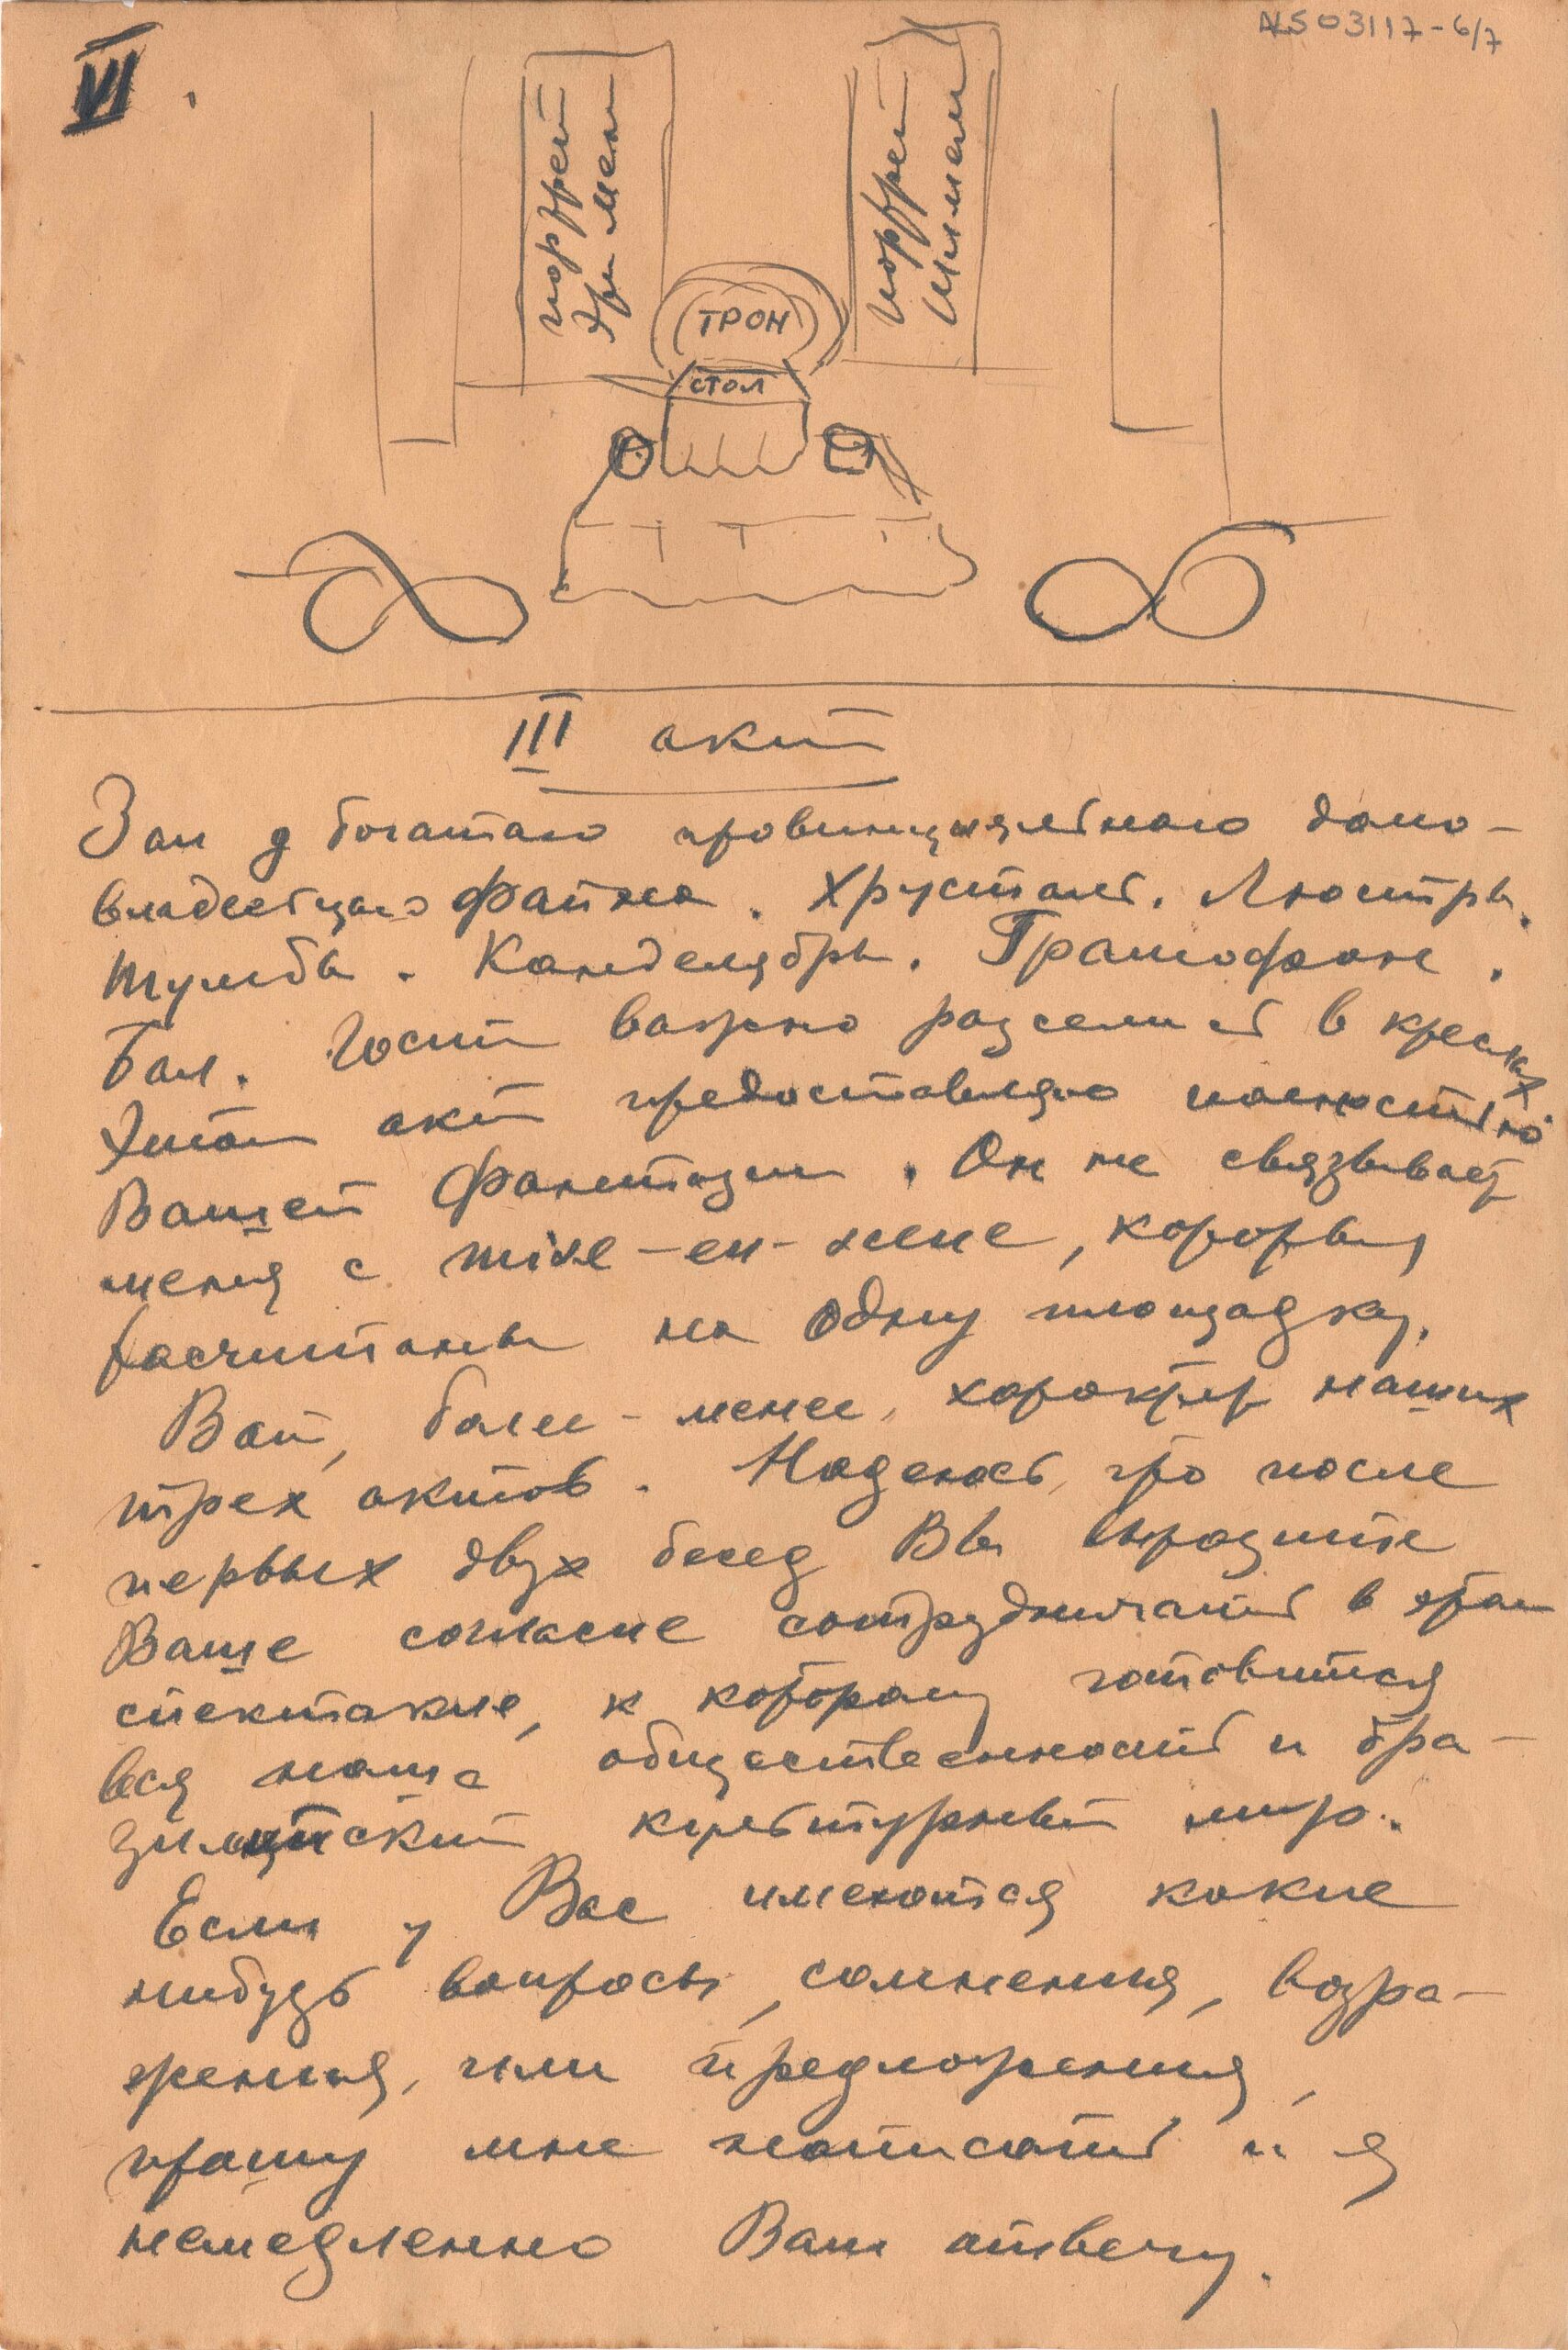 NS03117-6/7
VI.
портрет
портрет
ТРОН
СТОЛ
III акт
Зал у богатаго провинциальнаго домо-
владельцаго Файна. Хрусталь. Люстры.
Тумбы. Канделябры. Грамофон.
Бал. Гости важно разселись в креслах
Этот акт предоставляю полностью
Вашей фантазии. Он не связывает
меня с mise-en-scene, которыя
расчитаны на одну площадку.
Вот, более-менее, характер наших
трех актов. Надеюсь, что после
первых двух бесед Вы выразите
Ваше согласие сотрудничать в этом
спектакле, к которому готовится
вся наша общественность и бра-
зильский культурный мир.
Если у Вас имеются какие
нибудь вопросы, сомнения, возра-
жения, или предложения,
прошу мне написать и я
немедленно Вам отвечу.